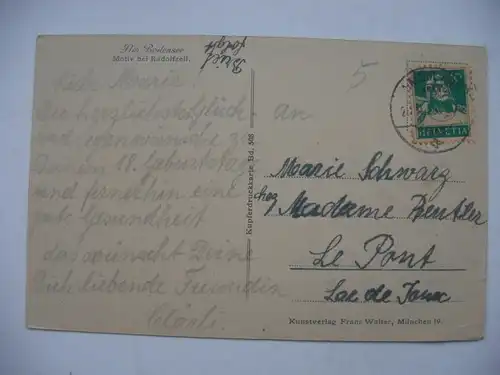 Am Bodensee
Motiv bei Radolfzell.
Brief
folgt
Liebe Marie!
Die herzlichsten Glück-
und wünsche z.
Dein im 18. Geburtstag
und fernerhin eine
gute Gesundheit
das wünscht Deine
Dich liebende Freundin
Klärli.
Kupferdruckkarte, Bld. 508
5
HELVETIA
An
Marie Schwarz
chez Madame Beutler
Le Pont
Lac de Joux
Kunstverlag Franz Walter, München 19.